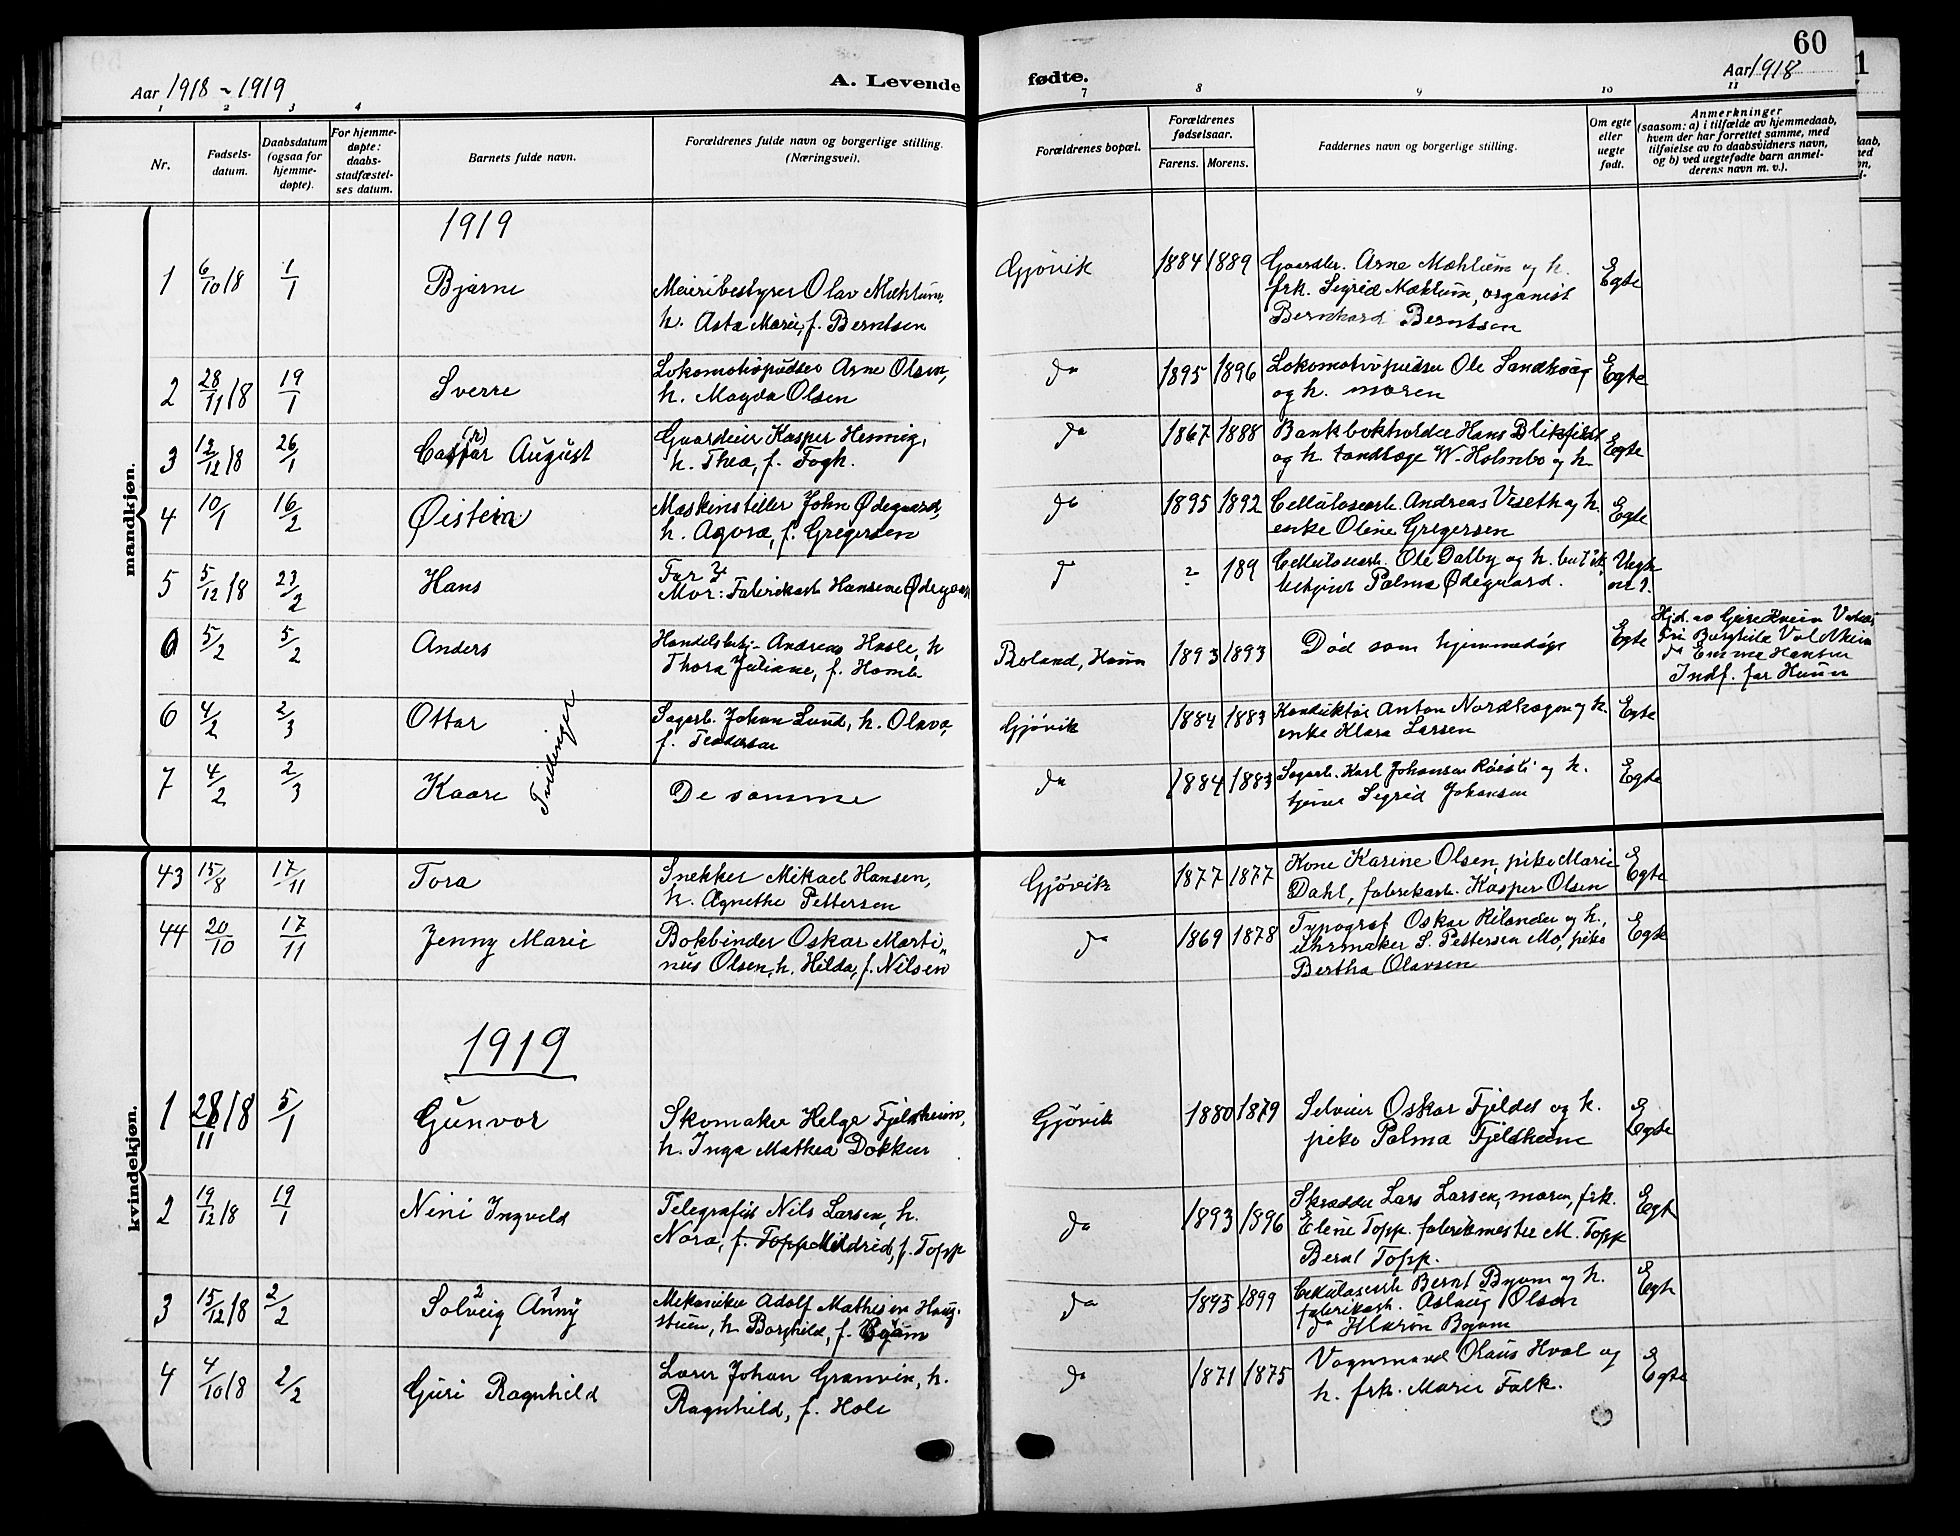 60
Aar 1918 - 1919
A. Levende fødte.
Aar 1918
1 2 3 4 7 8 9 10 11
Nr.
Fødsels-
datum.
Daabsdatum
(ogsaa for
hjemme-
døpte).
For hjemme-
døpte:
daabs-
stadfæstel-
ses datum.
Barnets fulde navn.
Forældrenes fulde navn og borgerlige stilling.
(Næringsvei).
Forældrenes bopæl.
Forældrenes
fødselsaar.
Farens. Morens.
Faddernes navn og borgerlige stilling.
Om egte
eller
uegte
født.
Anmerkninger
(saasom: a) i tilfælde av hjemmedaab,
hvem der har forrettet samme, med
tilføielse av to daabsvidners navn,
og b) ved uegtefødte barn anmel-
derens navn m. v.).
mandkjøn.
1919
1 6/10 18 1/1 Bjarne
Meieribestyrer Olav Mæhlum,
h. Asta Marie, f. Berntsen
Gjövik 1884 1889
Gaardbr. Arne Mæhlum og h.
frk. Sigrid Mæhlum, organist
Bernhard Berntsen
Egte
2 28/11 18 19/1 Sverre
Lokomotivpudser Arne Olsen,
h. Magda Olsen
do 1895 1896
Lokomotivpudser Ole
og h. moren
Egte
3 12/12 18 26/1 Caspar August
Gaardeier Kasper Hennig,
h. Thea, f. Fogh.
do 1867 1888
Bankbokholder Hans Blikfeldt
og h. tandlæge W. Holmbo og h.
Egte
4 10/1 16/2 Øistein
Maskinstiller John Ødegaard,
h. Agora, f. Gregersen
do 1895 1892
Cellulosearb. Andreas Veseth og h.
enke Oline Gregersen
Egte
5 5/12 18 23/2 Hans
Far ?
Mor: Fabrikarb. Hansine Ødegaard
? 189
Cellulosearb. Ole Dalby og h.
Palma Ødegaard.
Uegte
0 5/2 5/2 Anders
Handelsbetj. Andreas Hasle, h.
Thora Juliane, f.
Roland, Hunn 1893 1893
Død som hjemmedøpt
Egte
Hjd. av
Fru Borghild
do Emma Hansen
Indf. for Hunn
6 4/2 2/3 Ottar
Sagarb. Johan Lund, h. Olava,
f.
Gjövik 1884 1883
Konduktør Anton Nordhagen og h.
enke Klara Larsen
Egte
Tvillinger
7 4/2 2/3 Kaare
De samme
do 1884 1883
Sagarb. Karl Johansen og h.
tjener Sigrid Johansen
Egte
kvindekjøn.
43 15/8 17/11 Tora
Snekker Mikael Hansen,
h. Agnethe Pettersen
Gjövik 1877 1877
Kone Karine Olsen, pike Marie
Dahl, fabrikarb. Kasper Olsen
Egte
44 20/10 17/11 Jenny Marie
Bokbinder Oskar Marti-
nus Olsen, h. Hilda, f. Nilsen
do 1869 1878
Typograf Oskar Rilander og h.,
uhrmaker S. Pettersen Mo, pike
Bertha Olavsen
Egte
1919
1 28/11 18 5/1 Gunvor
Skomaker Helge Fjeldheim,
h. Inga Mathea Dokken
Gjövik 1880 1879
Selveier Oskar Fjeldet og h.
pike Palma Fjeldheim
Egte
2 19/12 18 19/1 Nini Ingveld
Telegrafist Nils Larsen, h.
Nora, f. Topp Mildrid, f. Topp
do 1893 1896
Skrædder Lars Larsen, moren, frk.
Eline Topp. fabrikmester M. Topp
Bernt Topp.
Egte
3 15/12 18 2/2 Solveig Anny
Mekaniker Adolf Mathisen Haug-
stuen, h. Borghild, f.
do 1895 1899
Cellulosearb. Bernt og h.
fabrikarb. Aslaug Olsen
do
Egte
4 4/10 18 2/2 Guri Ragnhild
Lærer Johan Granvin, h.
Ragnhild, f. Hole
do 1871 1875
Vognmand Olaus Hval og
h. frk. Marie Falk.
Egte